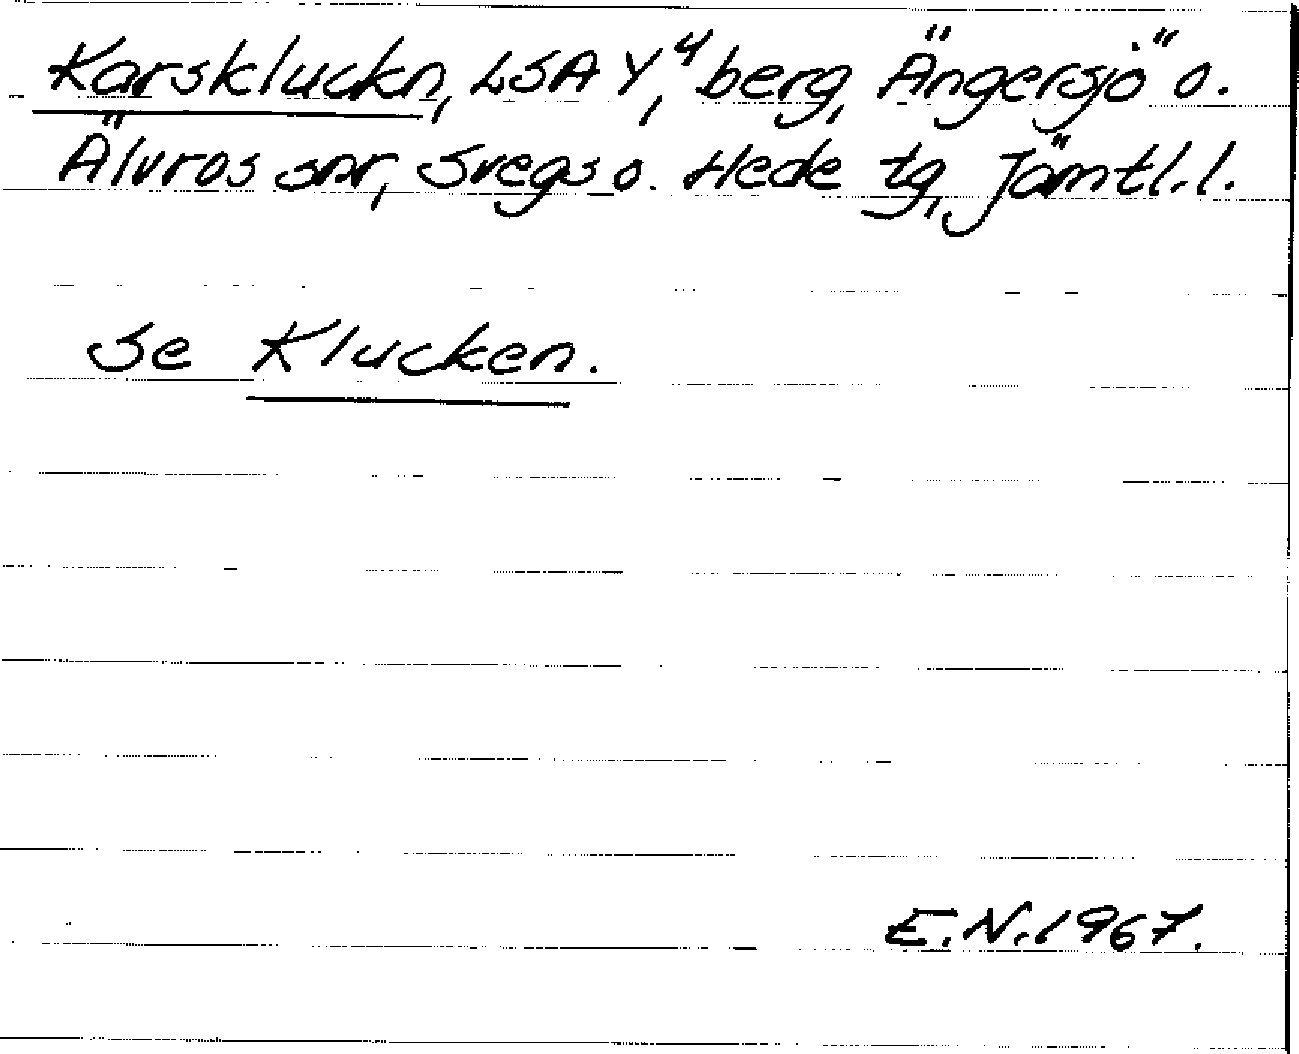 Karskluckn, LSA Y⁴, berg, Ängersjö o.
Älvros snr, Svegs o. Hede tg, Jämtl.l.
Se Klucken.
E.N.1967.